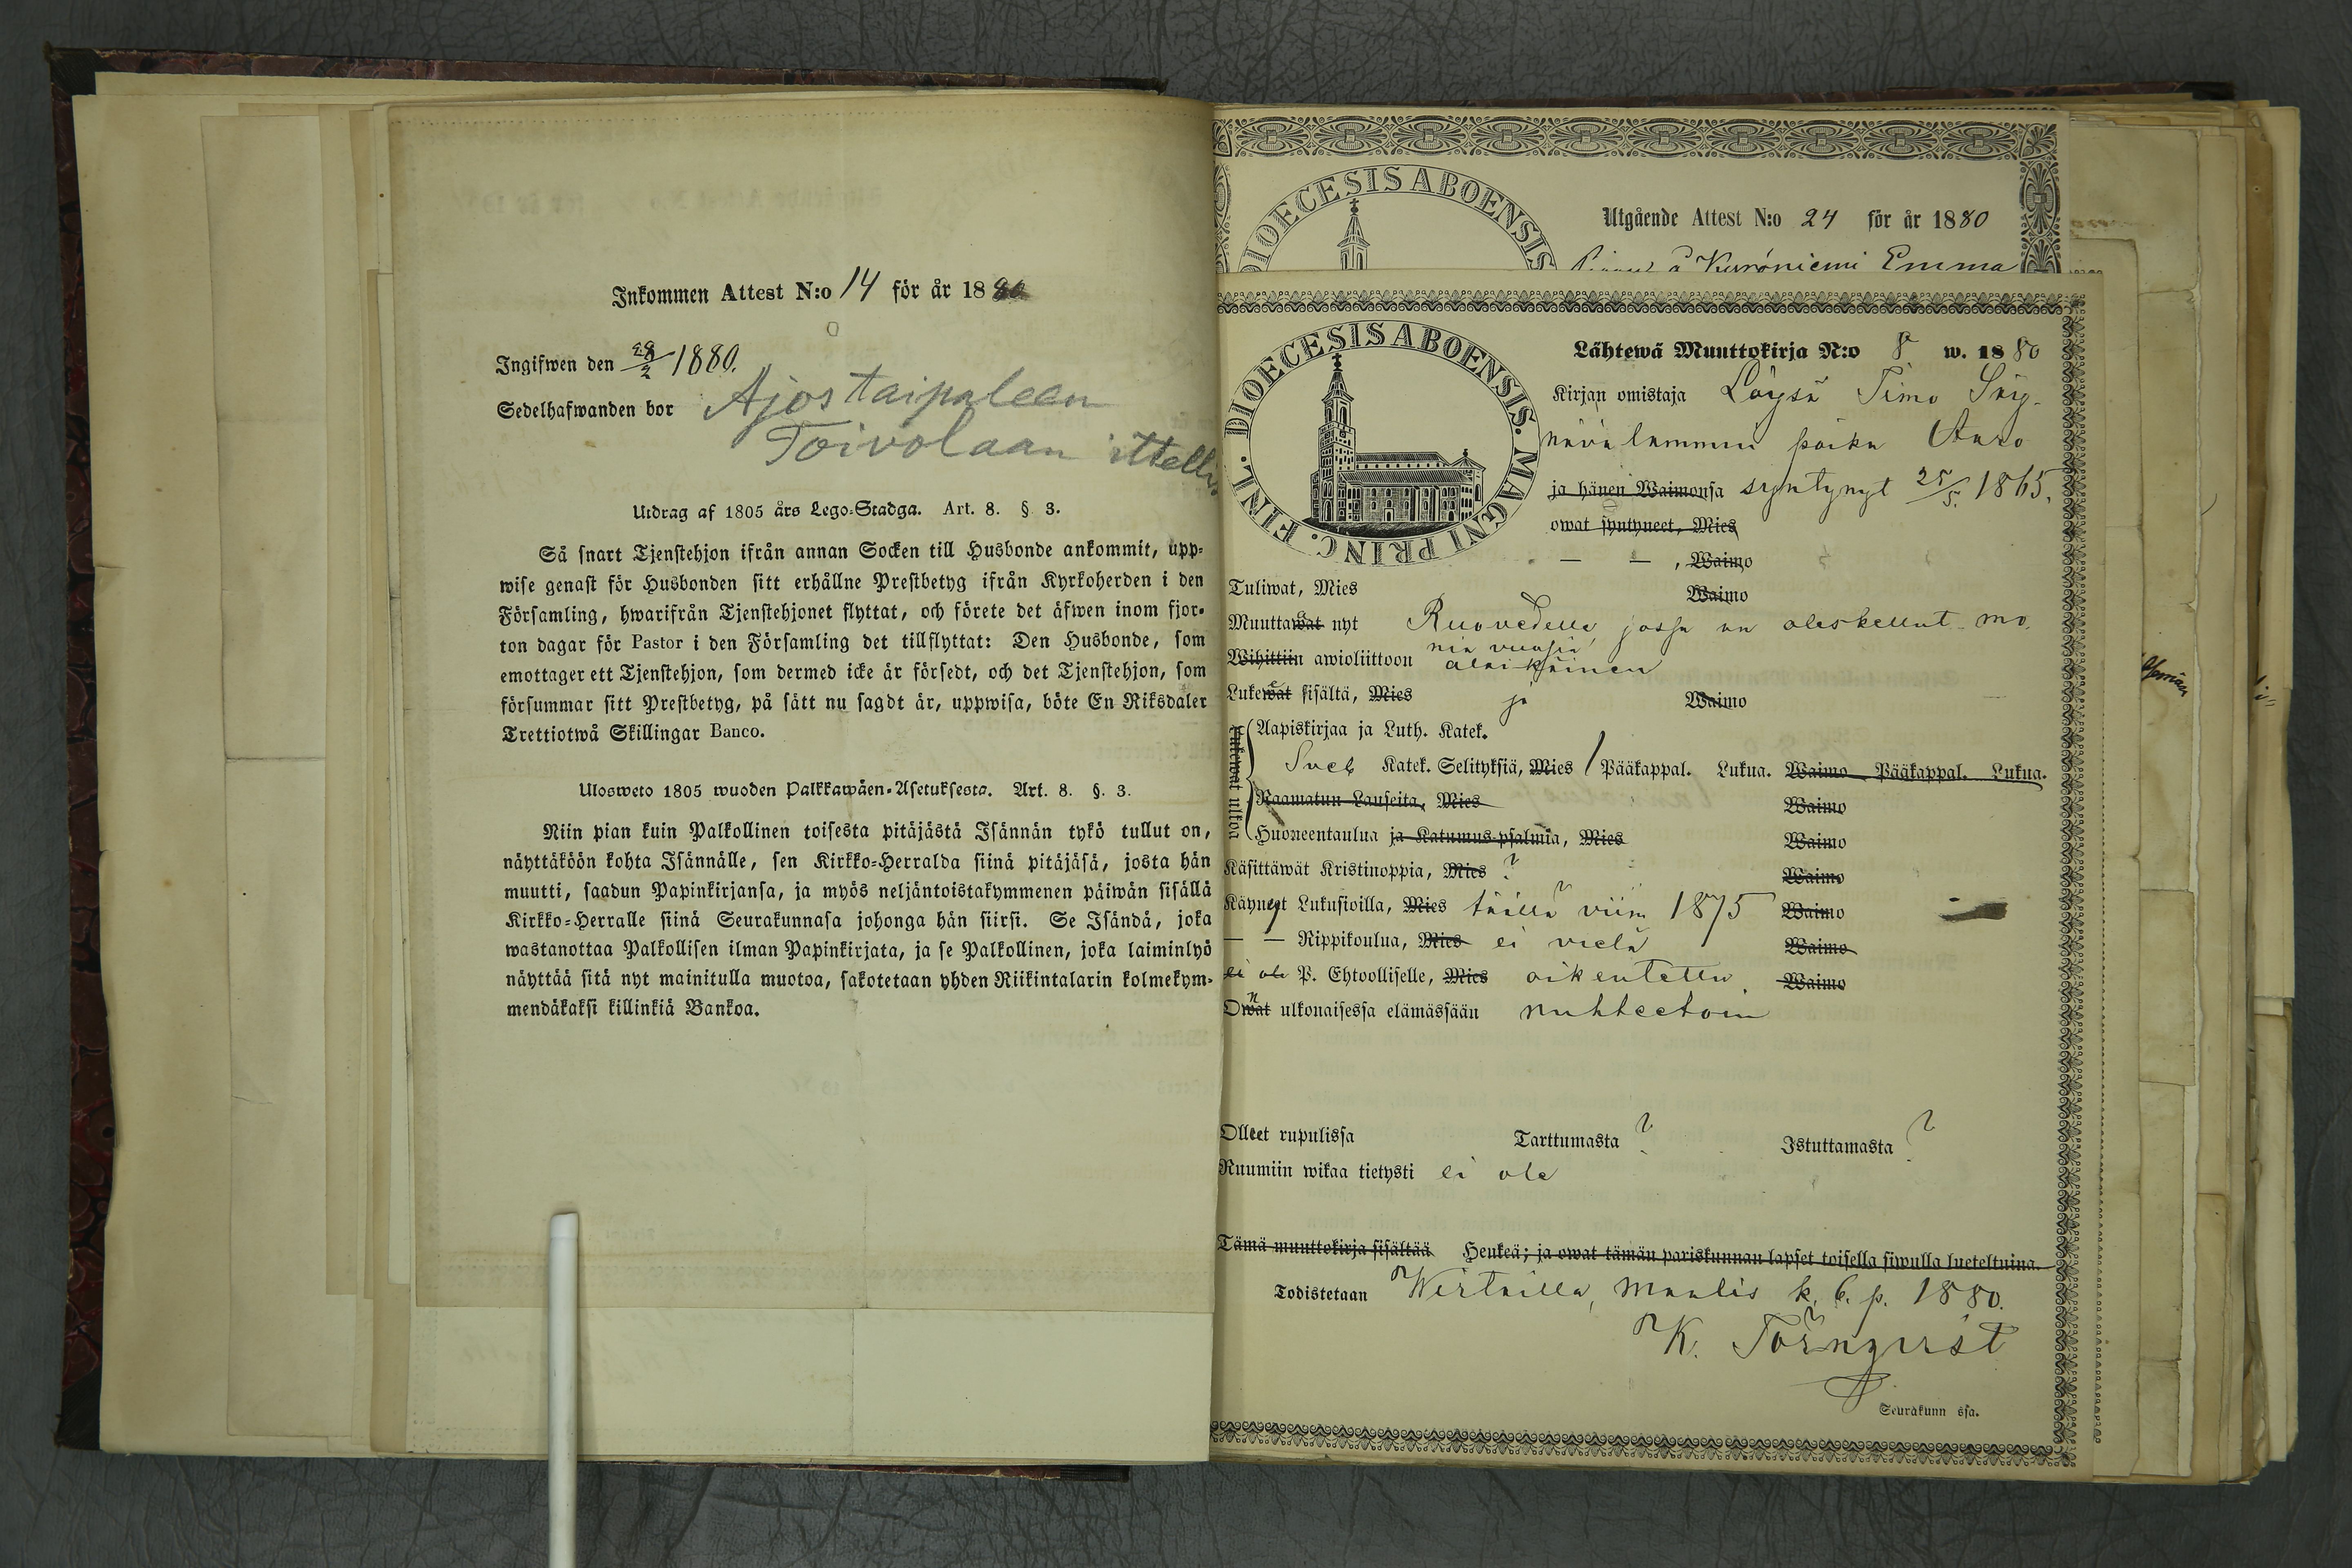 Inkommen Attest N:o 14 för år 1880
Ingifwen den 28/2 1880.
Sedelhafwanden bor Ajostaipaleen
Toivolaan ittelli
Utdrag af 1805 års Lego-Stadga. Art. 8. § 3.
Så snart Tjenstehjon ifrån annan Socken till Husbonde ankommit, upp-
wise genast för Husbonden sitt erhållne Prestbetyg ifrån Kyrkoherden i den
Församling, hwarifrån Tjenstehjonet flyttat, och förete det äfwen inom fjor-
ton dagar för Pastor i den Församling det tillflyttat: Den Husbonde, som
emottager ett Tjenstehjon, som dermed icke är försedt, och det Tjenstehjon, som
försummar sitt Prestbetyg, på sätt nu sagdt är, uppwisa, böte En Riksdaler
Trettiotwå Skillingar Banco.
Ulosweto 1805 wuoden Palkkawäen-Asetuksesta. Art. 8. §. 3.
Niin pian kuin Palkollinen toisesta pitäjästä Isännän tykö tullut on,
näyttäköön kohta Isännälle, sen Kirkko-Herralda siinä pitäjäsä, josta hän
muutti, saadun Papinkirjansa, ja myös neljäntoistakymmenen päiwän sisällä
Kirkko-Herralle siinä Seurakunnasa johonga hän siirsi. Se Isändä, joka
wastanottaa Palkollisen ilman Papinkirjata, ja se Palkollinen, joka laiminlyö
näyttää sitä nyt mainitulla muotoa, sakotetaan yhden Riikintalarin kolmekym-
mendäkaksi killinkiä Bankoa.
DIOECESIS ABOENSIS
Utgående Attest N:o 24 för år 1880
å Kuröniemi Emma
DIOECESIS ABOENSIS. MAGNI PRINC. FINL.
Lähtewä Muuttokirja N:o 8 w. 1880
Kirjan omistaja Löysä Timo Särg-
nävälammin poika Aaro
ja hänen Waimonsa syntynyt 25/5. 1865.
owat syntyneet, Mies
— — , Waimo
Tuliwat, Mies Waimo
Muuttawat nyt Ruovedelle, jossa on oleskellut mo
nia vuosia
Wihittiin awioliittoon alaikäinen
Lukewat sisältä, Mies ja Waimo
Lukewat ulkoa
Aapiskirjaa ja Luth. Katek.
Sveb Katek. Selityksiä, Mies / Pääkappal. Lukua. Waimo Pääkappal. Lukua.
Raamatun Lauseita, Mies Waimo
Huoneentaulua ja Katumus-psalmia, Mies Waimo
Käsittäwät Kristinoppia, Mies ? Waimo
Käyneet Lukusioilla, Mies täällä viim 1875 Waimo
— — Rippikoulua, Mies ei vielä Waimo
ei ole P. Ehtoolliselle, Mies oikeutettu. Waimo
Owat ulkonaisessa elämässään nuhteetoin
Olleet rupulissa Tarttumasta ? Istuttamasta ?
Ruumiin wikaa tietysti ei ole
Tämä muuttokirja sisältää Henkeä; ja owat tämän pariskunnan lapset toisella siwulla lueteltuina.
Todistetaan Wirtailla, Maalis k. 6. p. 1880.
K. Törnqvist
Seurakunn ssa.